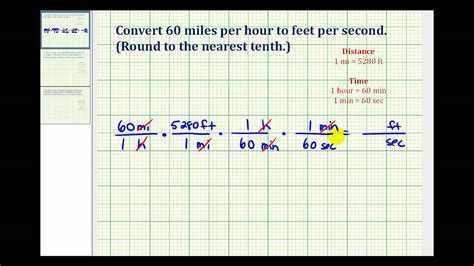 Convert 60 miles per hour to feet per second.
(Round to the nearest tenth.)
Distance
1 mi = 5280 ft
Time
1 hour = 60 min
1 min = 60 sec
60 mi / 1 h · 5280 ft / 1 mi · 1 h / 60 min · 1 min / 60 sec = ft / sec